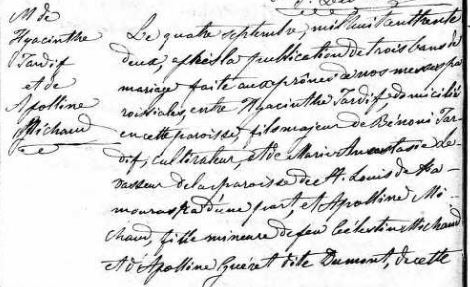 M de
Hyacinthe
Tardif
et de
Apolline
Michaud
Le quatre septembre, mil huit cent trente
deux, après la publication de trois bans de
mariage faite aux prônes de nos messes pa
roissiales, entre Hyacinthe Tardif, domicilié
en cette paroisse, fils majeur de Bénoni Tar
dif, cultivateur, et de Marie Anastasie Le
vasseur de la paroisse de St. Louis de Ka-
mouraska d'une part, et Apolline Mi-
chaud, fille mineure de feu Célestin Michaud
et d'Apolline Guéret dite Dumont, de cette